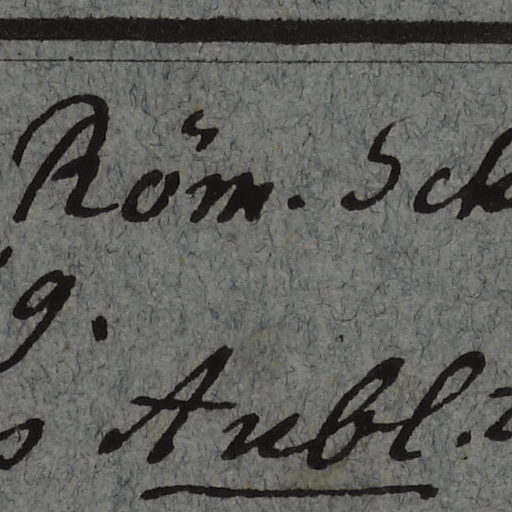 Röm. Sch
g.
s Aubl.